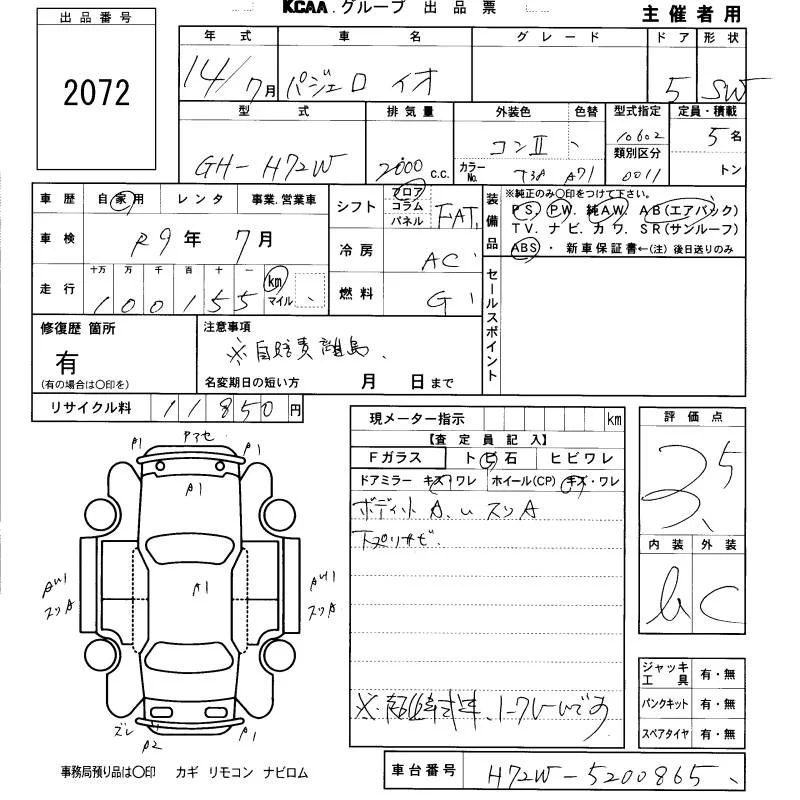 KCAA.グループ 出品票 主催者用
出品番号
2072
年式 車名 グレード ドア 形状
14/7月 パジェロ イオ 5 SW
型式 排気量 外装色 色替 型式指定 定員・積載
GH-H72W 2000 c.c. コンⅡ 10602 5名
カラーNo. T38 A71 類別区分 0011 トン
車歴 自家用 レンタ 事業.営業車
車検 R9年 7月
走行 十万 万 千 百 十 一 km マイル
100155
シフト フロア コラム パネル FAT
冷房 AC
燃料 G
装備品 ※純正のみ〇印をつけて下さい。
PS. PW. 純AW. AB(エアバック)
TV. ナビ. カワ. SR(サンルーフ)
ABS・ 新車保証書←(注)後日送りのみ
セールスポイント
修復歴 箇所
有
(有の場合は〇印を)
注意事項
※自賠責離島
名変期日の短い方 月 日まで
リサイクル料 11850円
現メーター指示 km
【査定員記入】
Fガラス トビ石 ヒビワレ
ドアミラー キズ・ワレ ホイール(CP) キズ・ワレ
ボディ小A.U スリA
下プリサビ.
評価点
3.5
内装 外装
b C
A1 A1
A1
A1
AU1
スリA
AU1
スリA
ズレ
A2 A1
ジャッキ工具 有・無
パンクキット 有・無
スペアタイヤ 有・無
事務局預り品は〇印 カギ リモコン ナビロム
車台番号 H72W-5200865